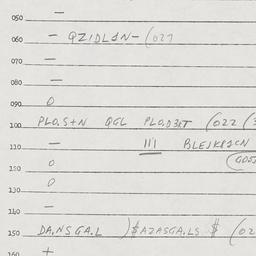 050 —
060 — QZIDLSN-(027
070 —
080 —
090 0
100 PLO.S+N QGL PLO.D3KT (022 (3
110 — 111 BLEJKPSCN
120 0 (GOS
130 0
140 —
150 DA,NSGA.L )$AZASGA.LS $ (02
160 +